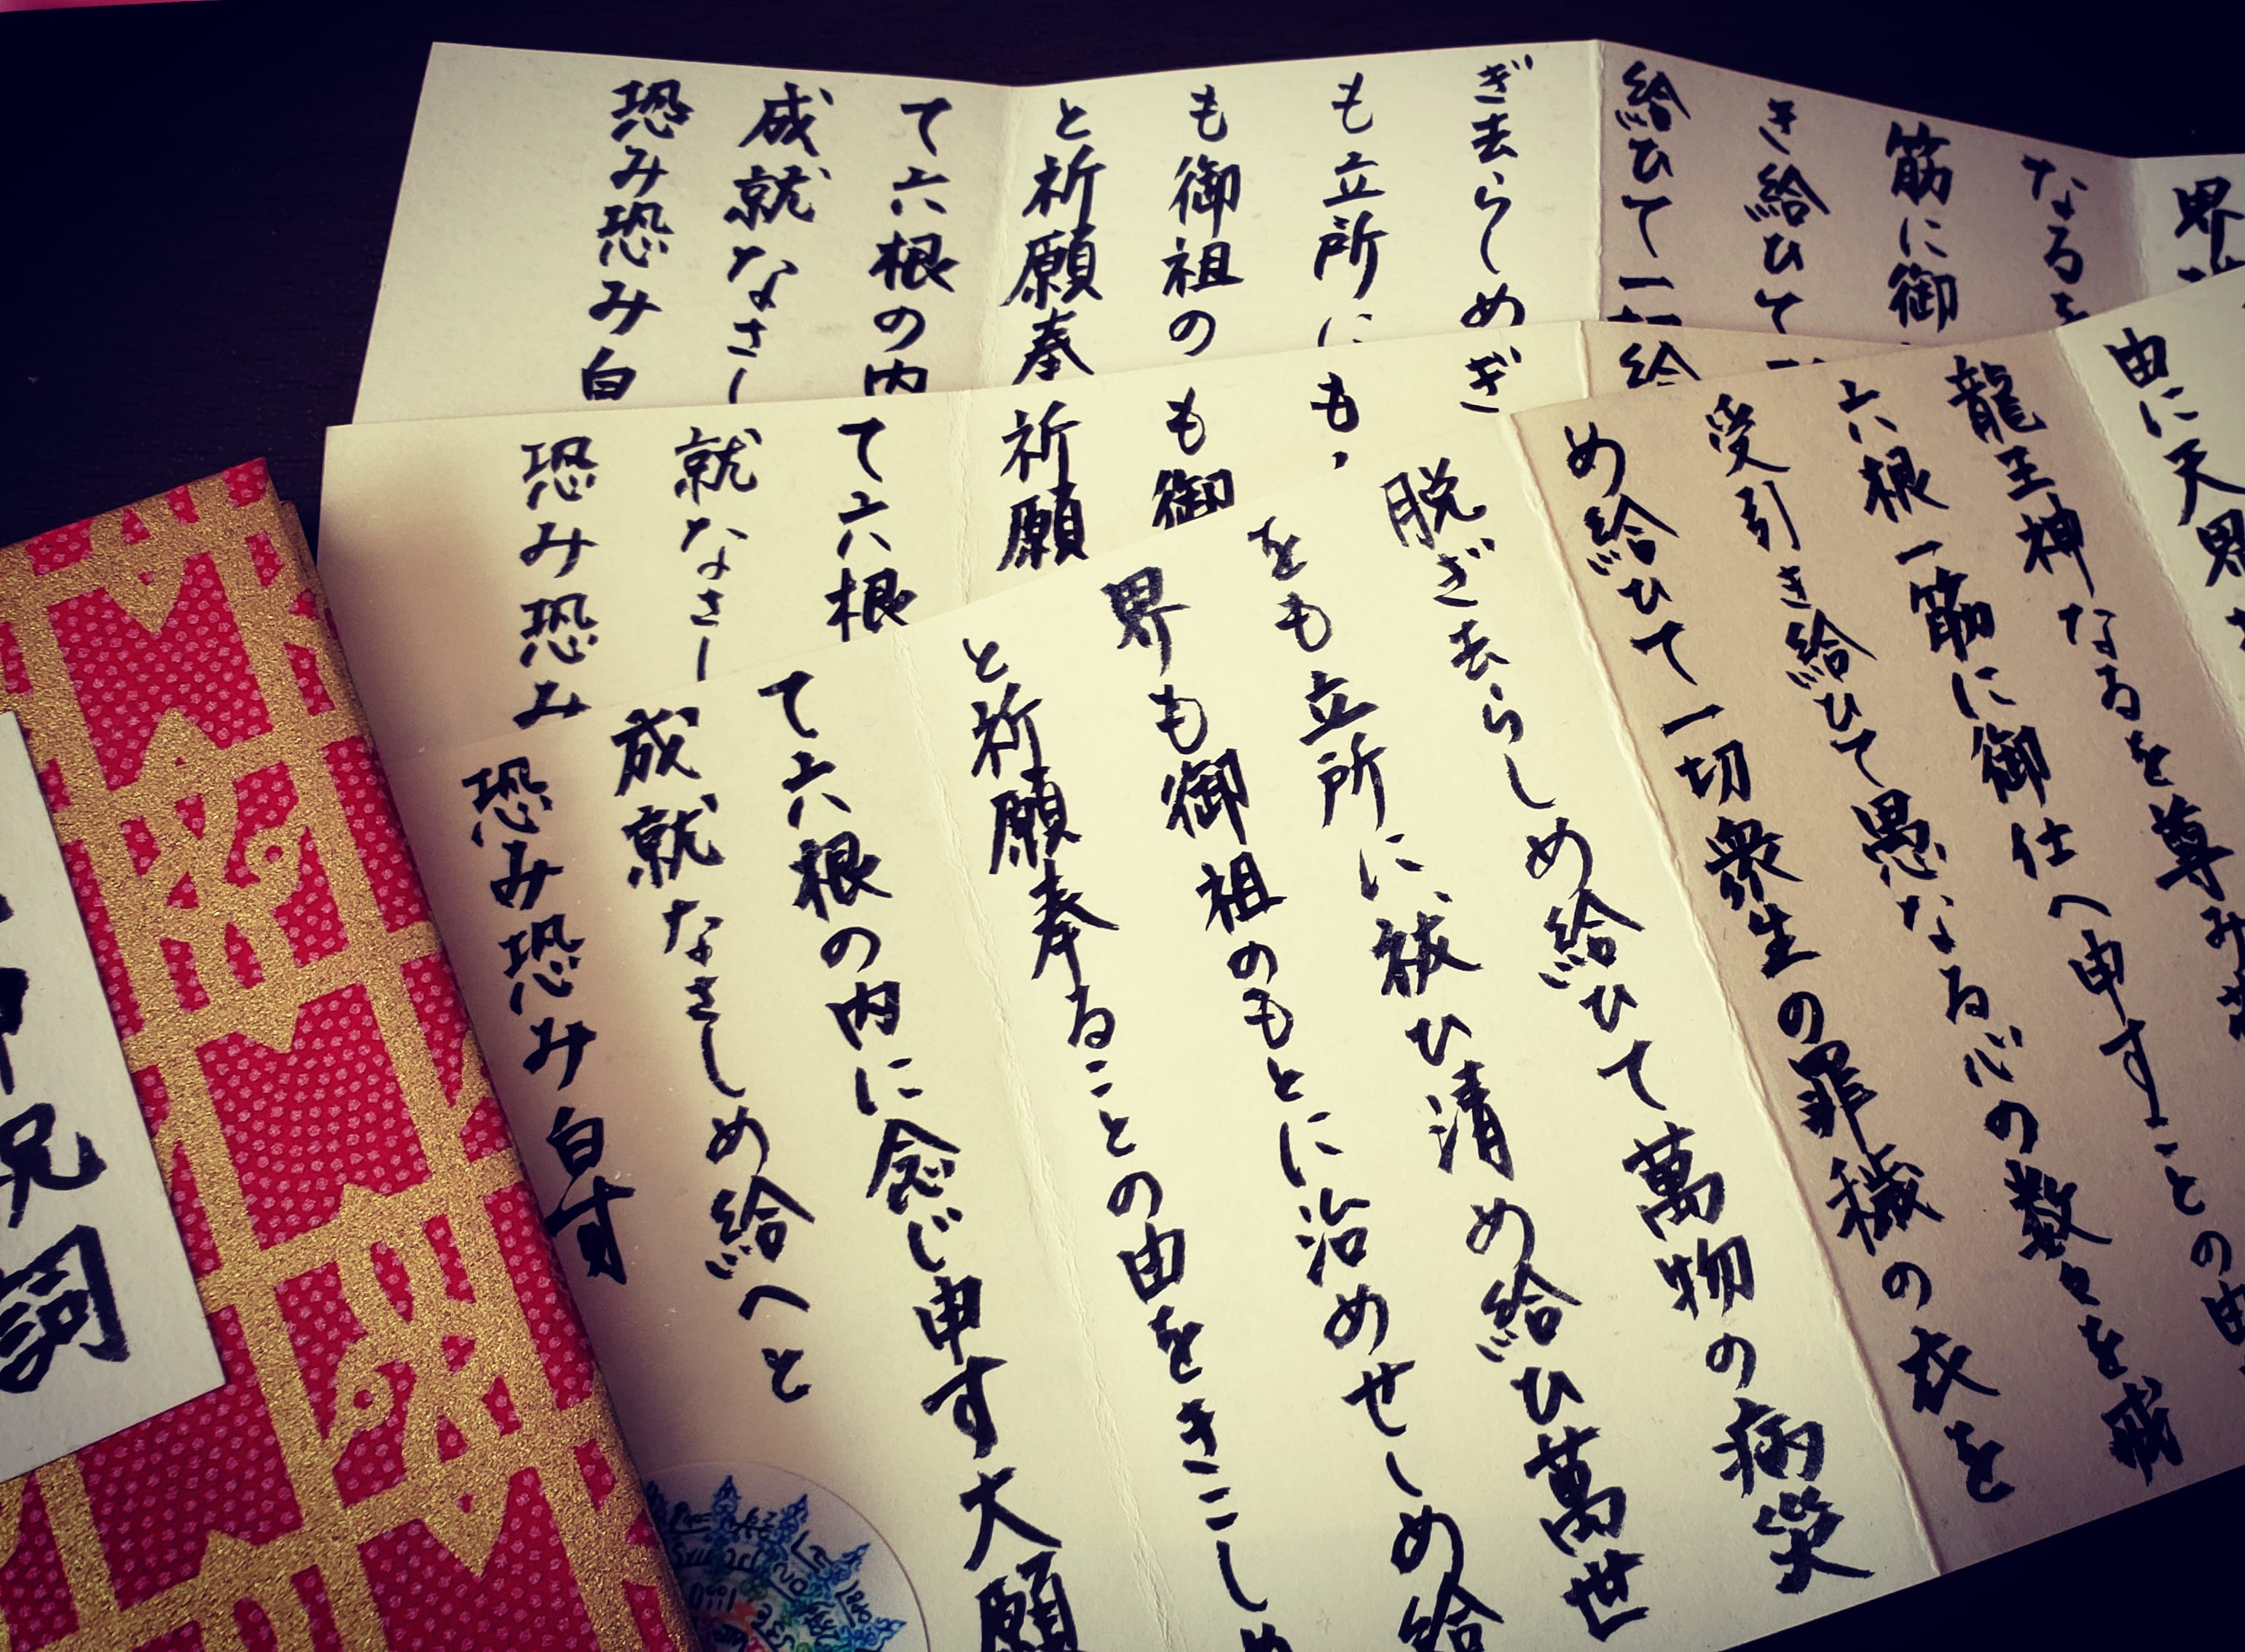 界
なるを
筋に御
き給ひて一
給ひて一切
ぎ去らしめ
も立所に
も御祖の
と祈願奉
て六根の内
成就なさし
恐み恐み白
給
ぎ
も
も御
祈願
て六根
就なさし
恐み恐み
由に天界
龍王神なるを尊み
六根一筋に御仕へ申すことの由
受引き給ひて愚なる心の数々を戒
め給ひて一切衆生の罪穢の衣を
脱ぎ去らしめ給ひて萬物の病災
をも立所に祓ひ清め給ひ萬世
界も御祖のもとに治めせしめ給
と祈願奉ることの由をきこしめ
て六根の内に念じ申す大願
成就なさしめ給へと
恐み恐み白す
神祝詞